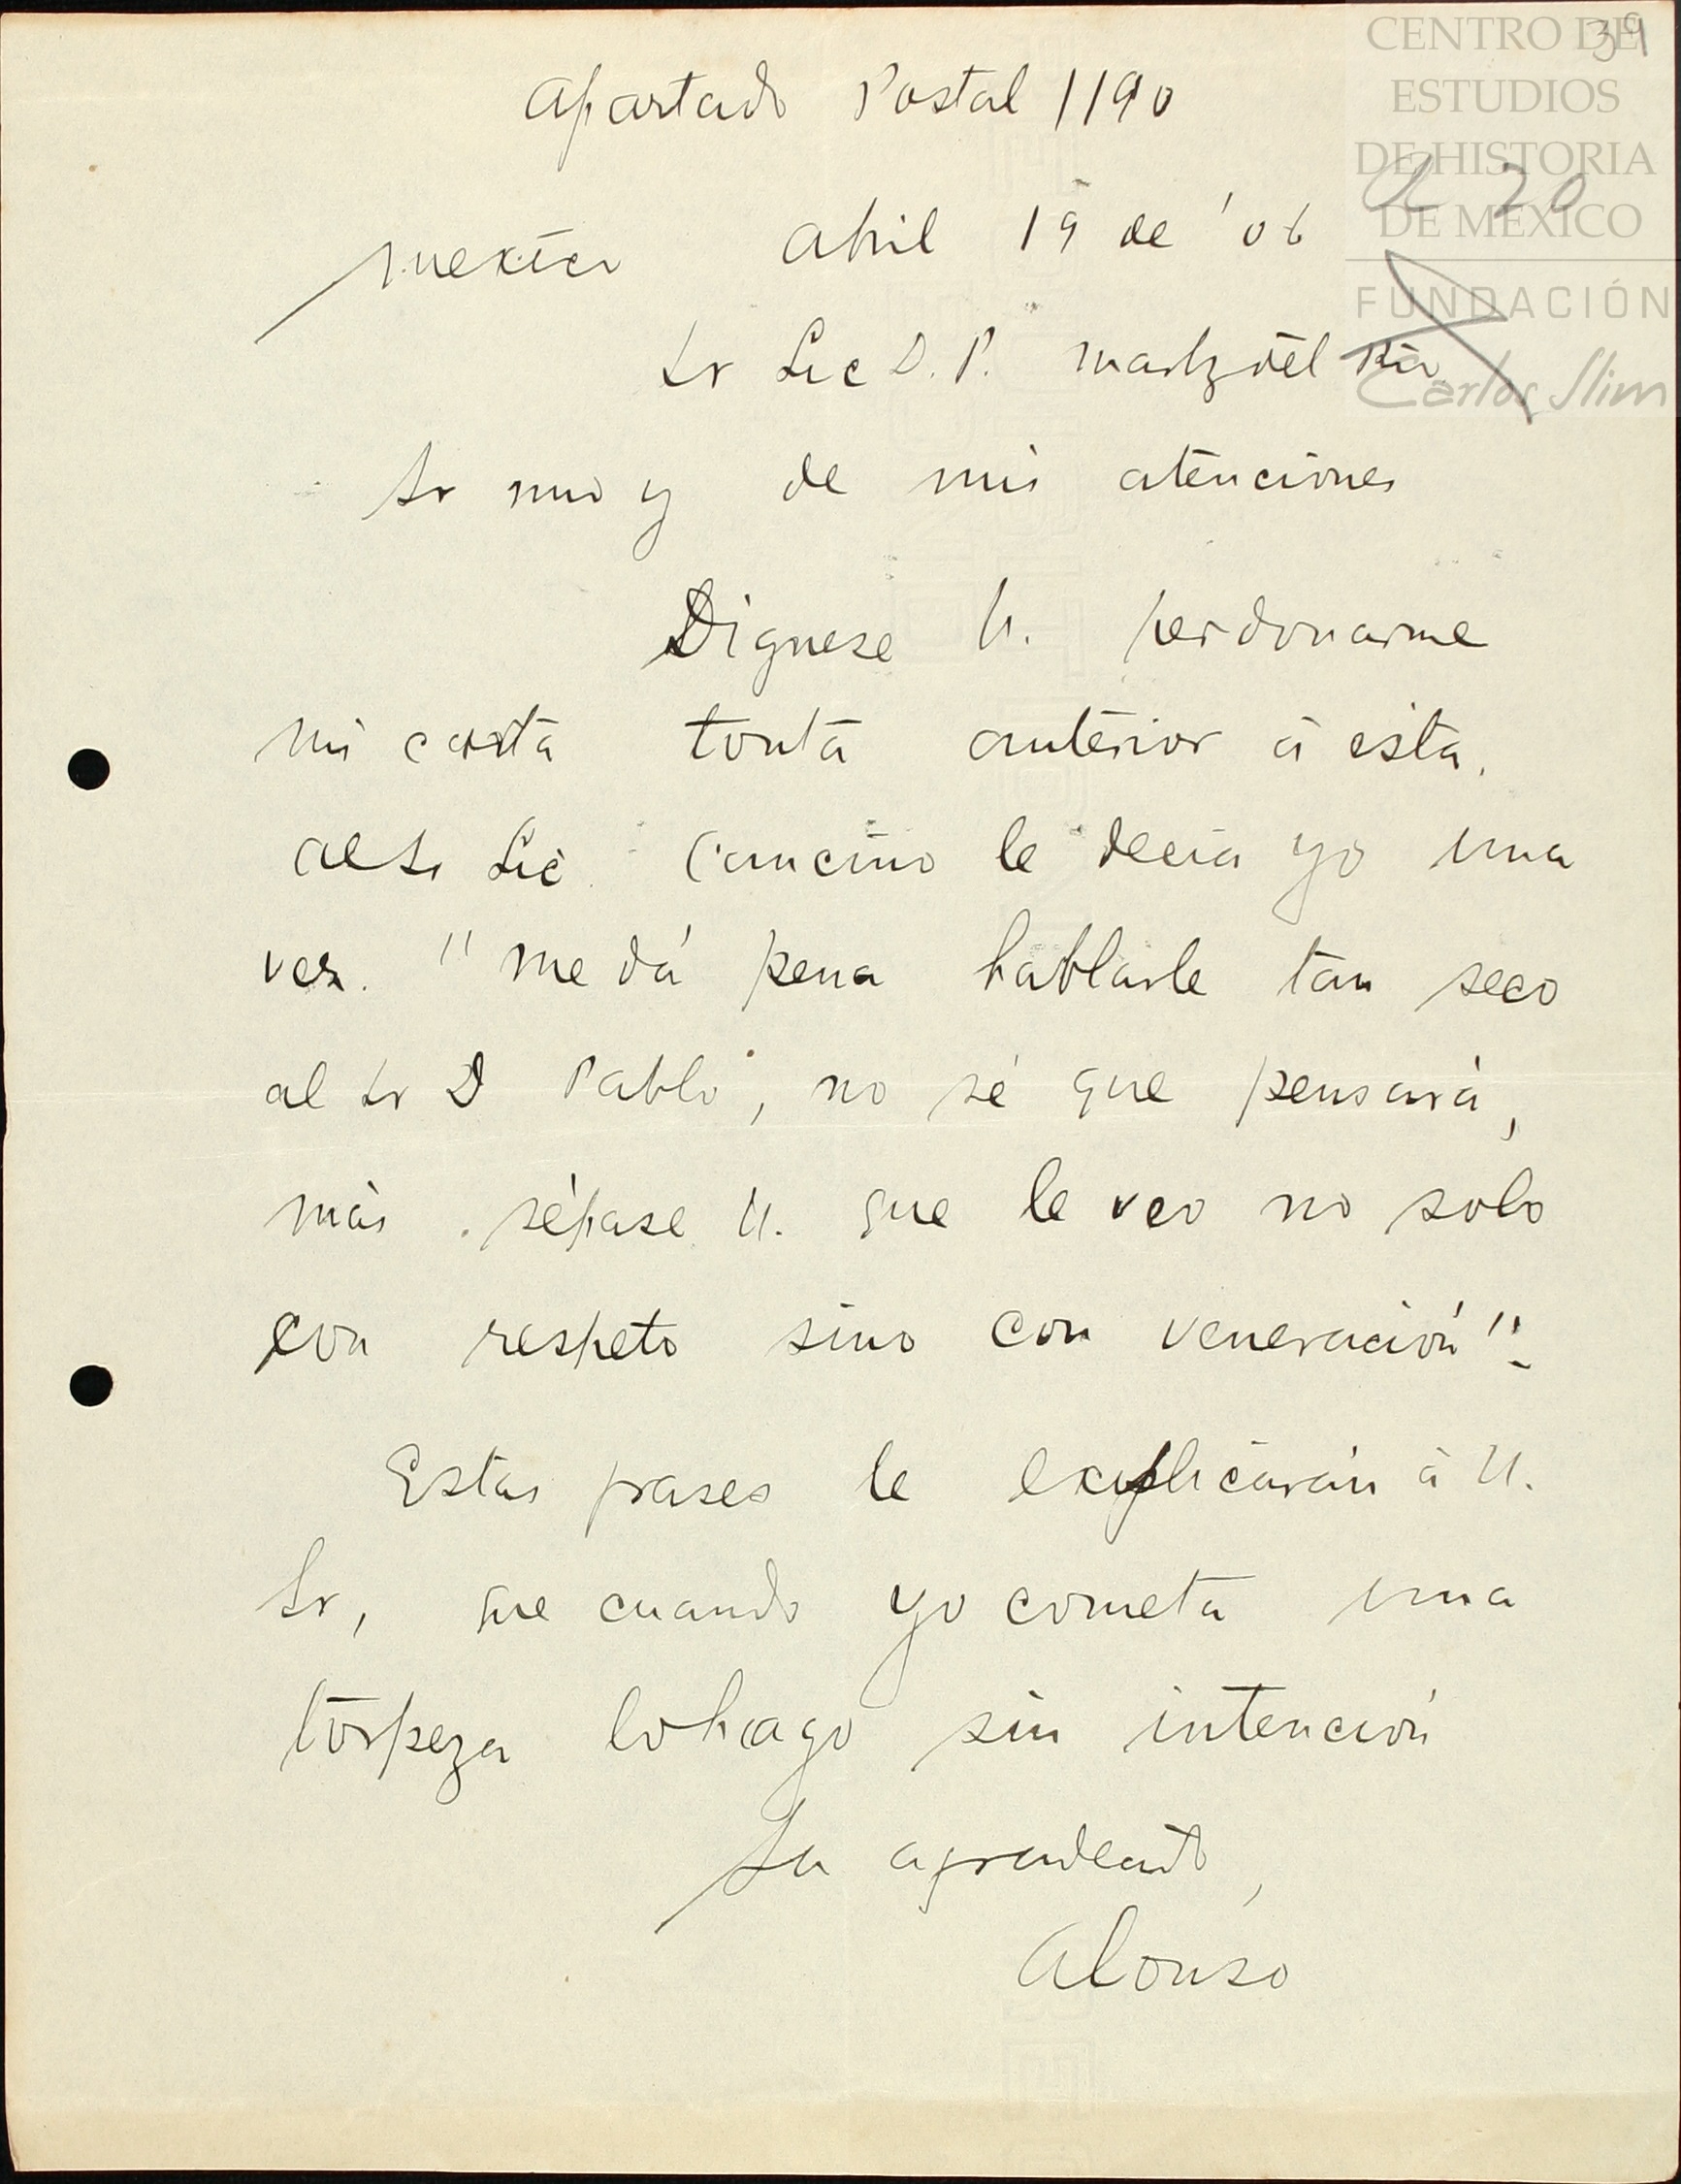 39
CENTRO DE
ESTUDIOS
DE HISTORIA
DE MÉXICO
FUNDACIÓN
Carlos Slim
Apartado Postal 1190
a 20
Mexico Abril 19 de '06
Sr Lic D. P. Martz del Rio
Sr mio y de mis atenciones
Dignese U. perdonarme
mi carta tonta anterior á esta.
Al Sr Lic. Cancino le decia yo una
vez. "me dá pena hablarle tan seco
al Sr D Pablo, no sé que pensará,
más sépase U. que le veo no solo
con respeto sino con veneración".
Estas frases le explicarán á U.
Sr, que cuando yo cometa una
torpeza lo hago sin intención
Su agradecido,
Alonso